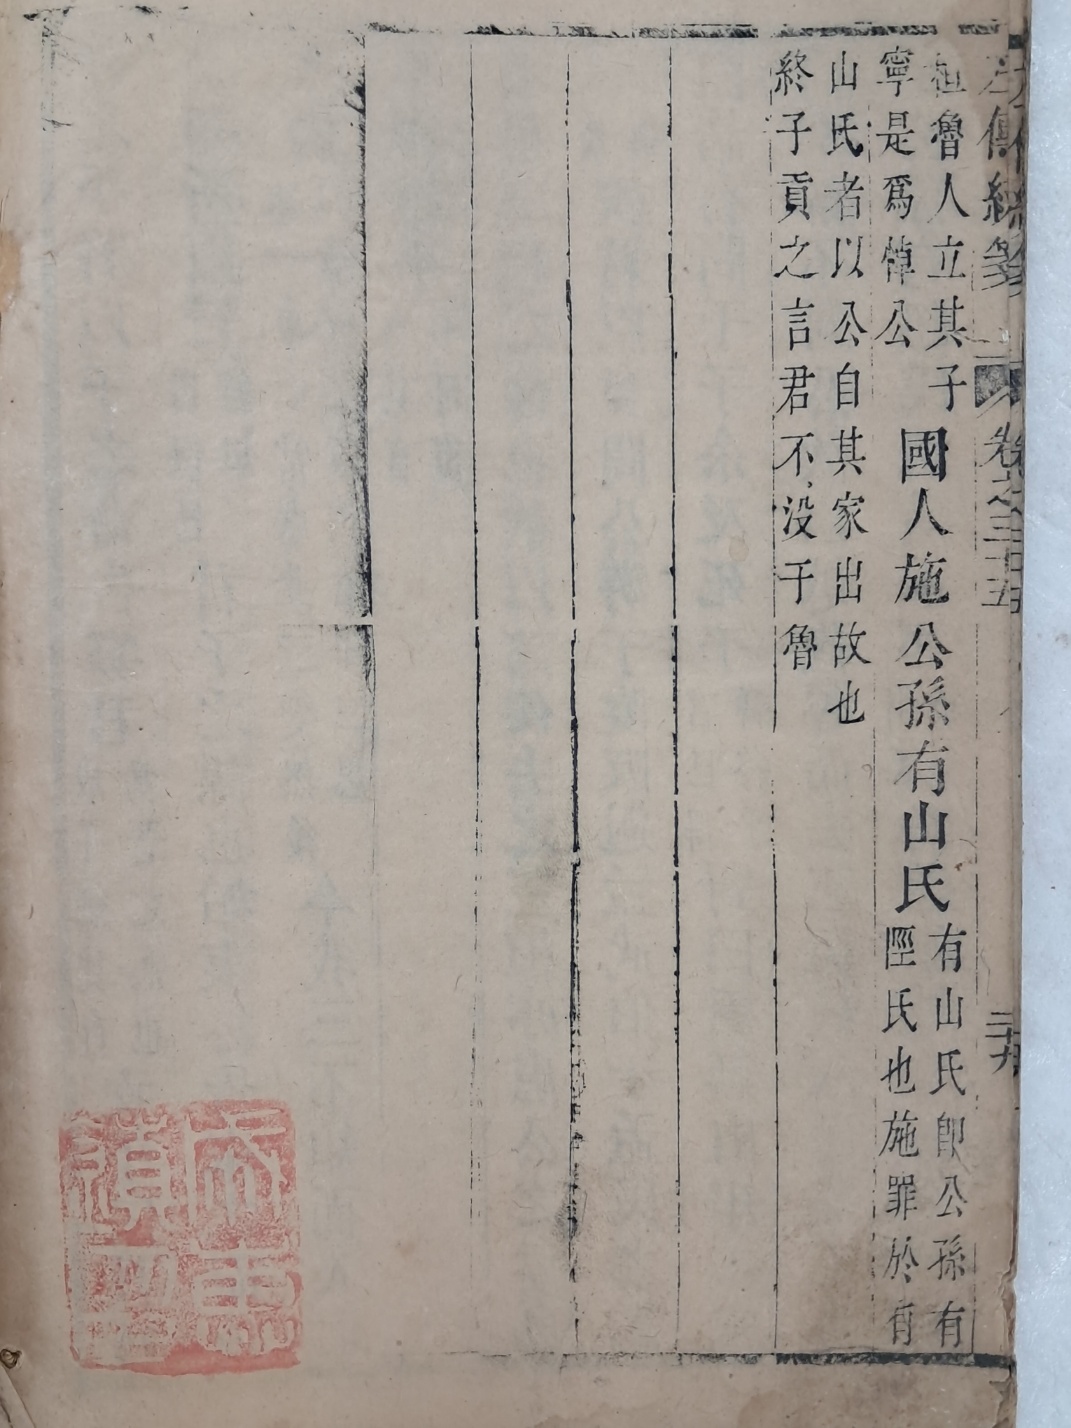 左傳統箋 卷之三十五 二十九
祖魯人立其子
寧是爲悼公
國人施公孫有山氏
有山氏即公孫有
陘氏也施罪於有
山氏者以公自其家出故也
終子貢之言君不沒于魯